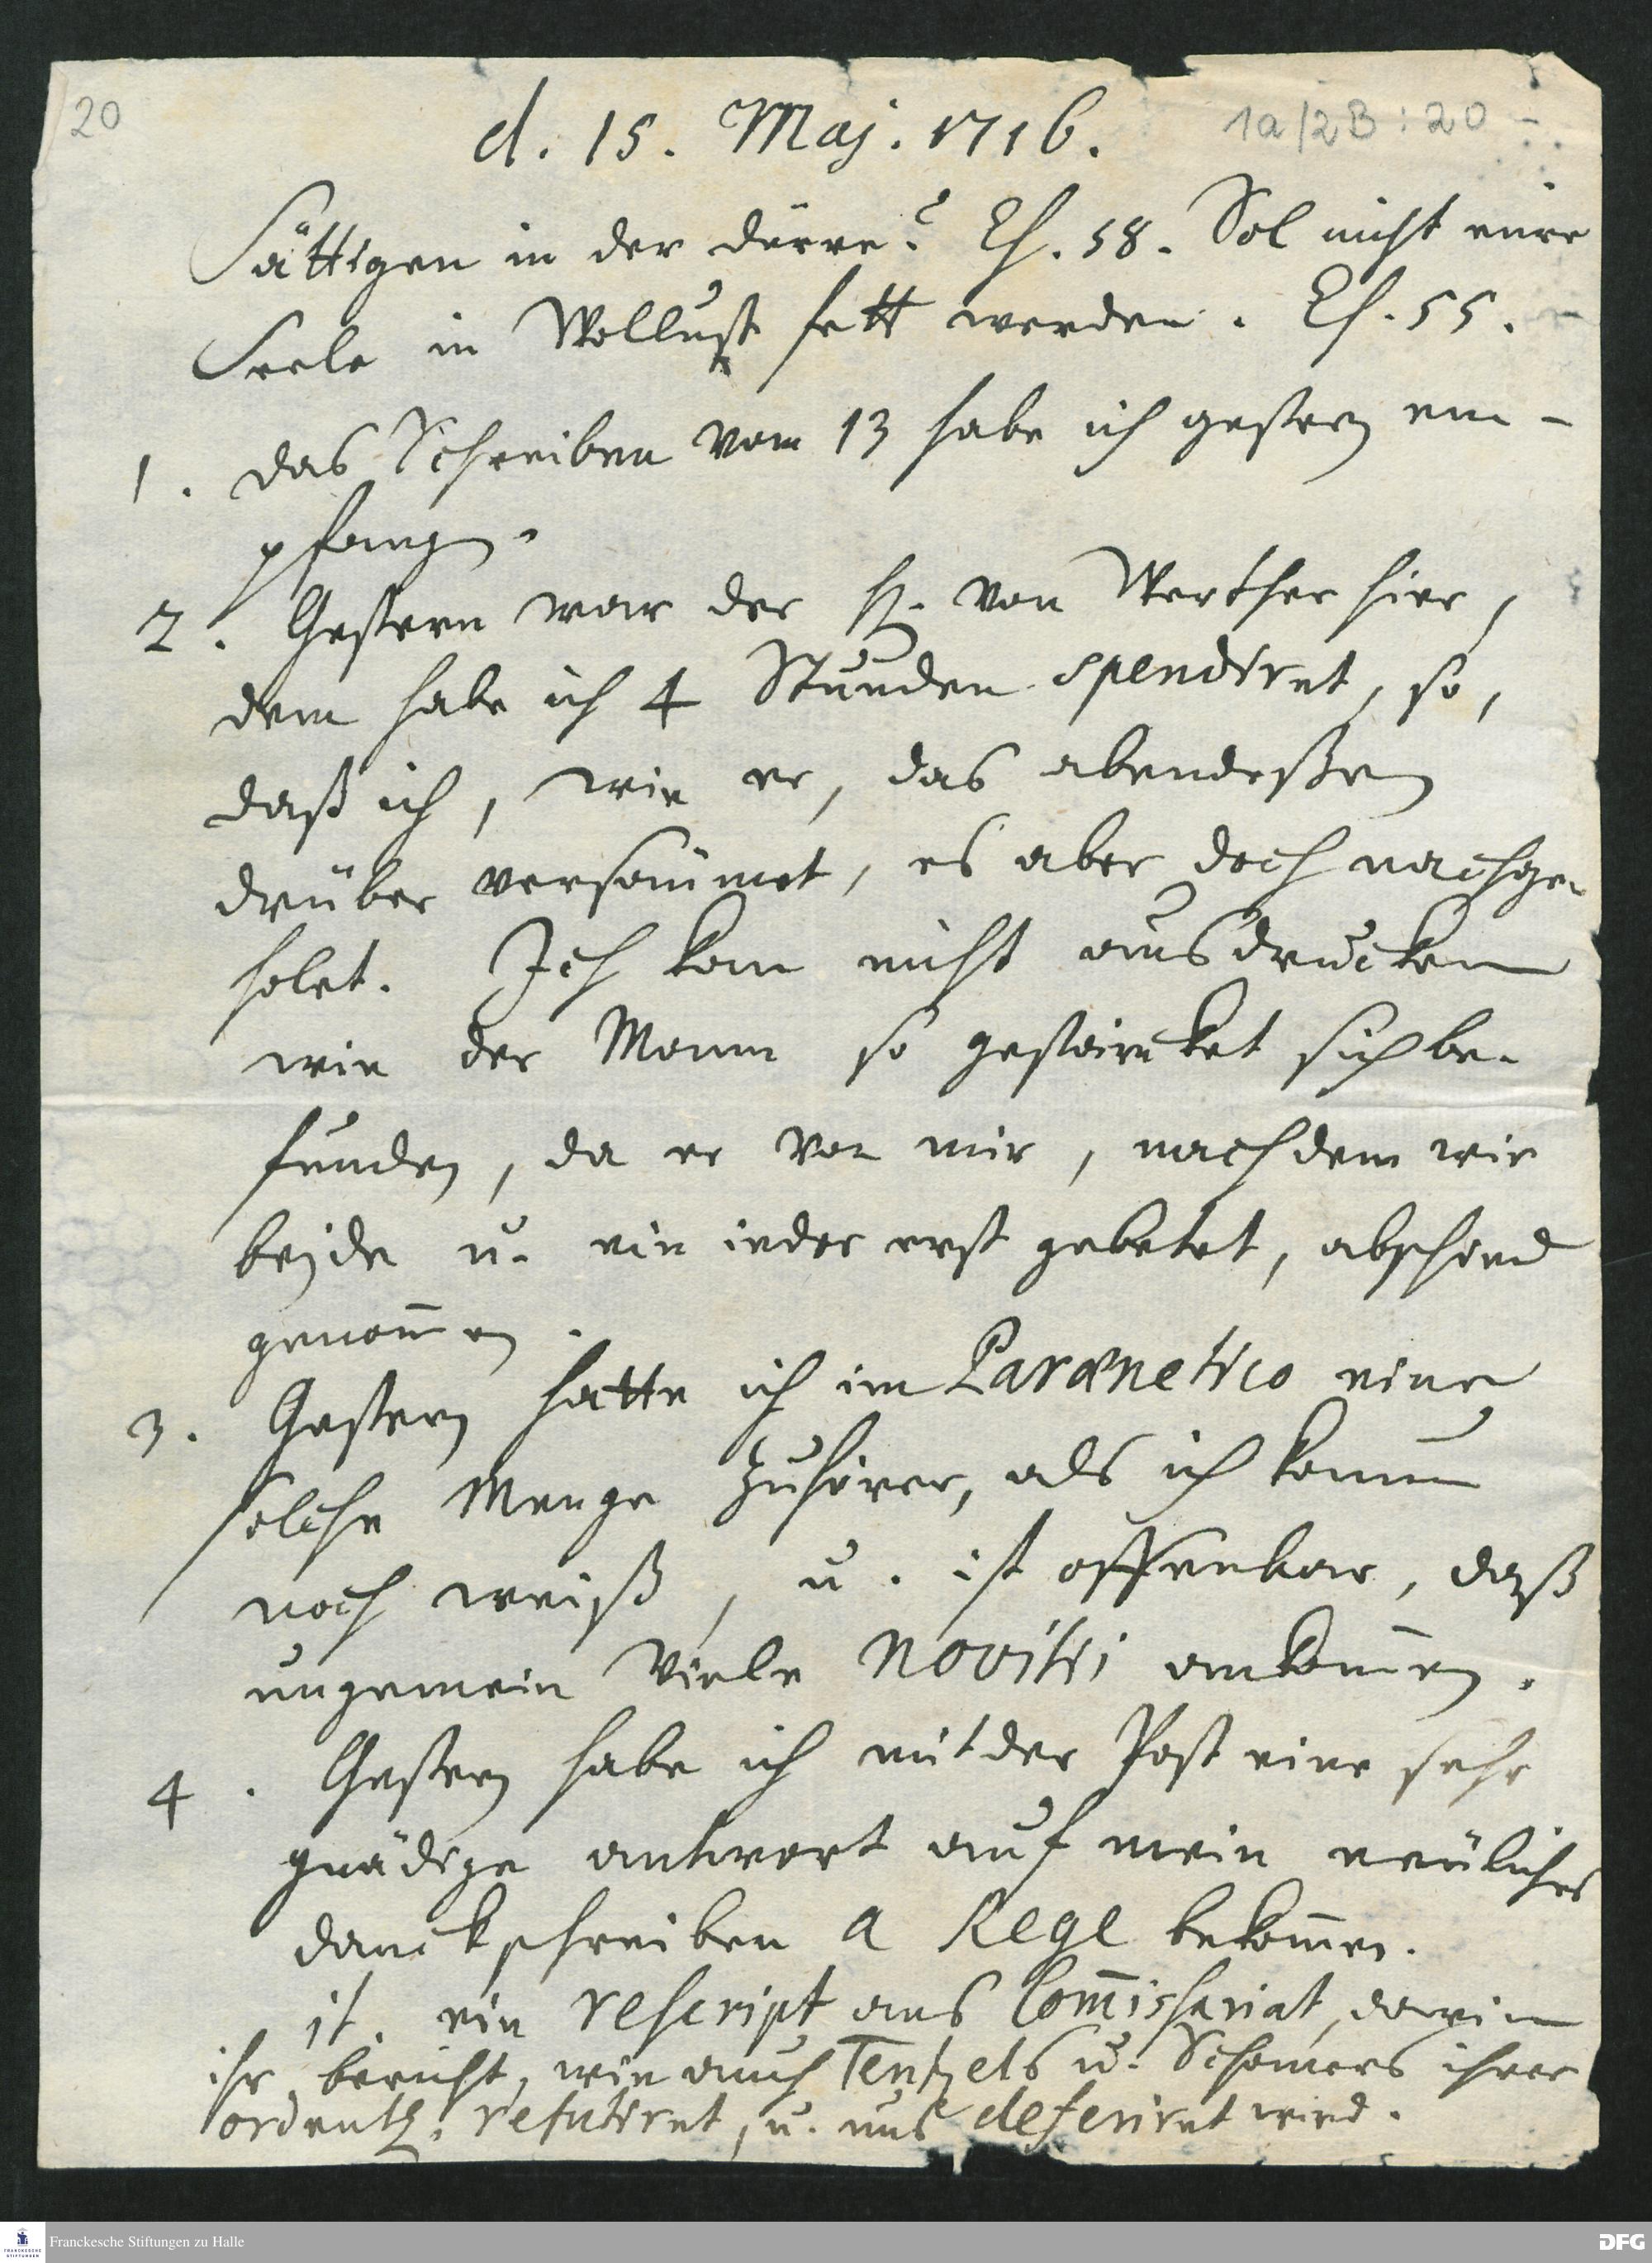 20
d. 15. Maj. 1716.
1a/2B:20
Sättigen in der dürre? Es. 58. Sol nicht eure
Seele in Wollust fett werden. Es. 55.
1. das Schreiben vom 13 habe ich gestern em-
pfangen.
2. Gestern war der H. von Werther hier,
dem habe ich 4 Stunden spendiret, so,
daß ich, wie er, das abendeßen
drüber versäumet, es aber doch nachge-
holet. Ich kan nicht ausdrucken
wie der Mann so gestärcket sich be-
funden, da er von mir, nachdem wir
beÿde u. ein ieder erst gebetet, abschied
genom̄en.
3. Gestern hatte ich im Parænetico eine
solche Menge Zuhörer, als ich kaum
noch weiß, u. ist offenbar, daß
ungemein viele Novitii ankom̄en.
4. Gestern habe ich mit der Post eine sehr
gnädige antwort auf mein neüliches
danckschreiben a Rege bekom̄en.
it. ein rescript ans Com̄issariat, darin
ihr bericht, wie auch Tentzels u. Schomers ihrer
ordentl. refutiret, u. uns deferiret wird.
Franckesche Stiftungen zu Halle
DFG